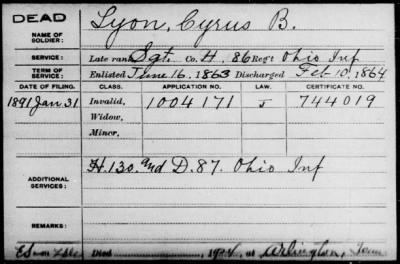 DEAD
NAME OF SOLDIER: Lyon, Cyrus B.
SERVICE: Late rank Sgt. Co. H, 86 Reg't Ohio Inf
TERM OF SERVICE: Enlisted June 16, 1863 Discharged Feb 10, 1864
DATE OF FILING. CLASS. APPLICATION NO. LAW. CERTIFICATE NO.
1891 Jan. 31 Invalid, 1004171 J 744019
Widow,
Minor,
ADDITIONAL SERVICES: H. 130. and D. 87. Ohio Inf
REMARKS:
Died 1924, at Arlington, Iowa